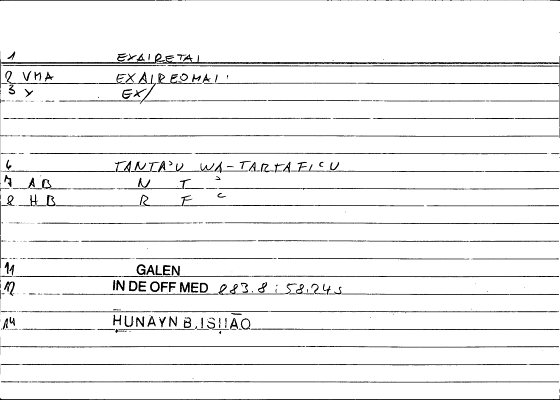 1 EXAIRETAI
2 VMA EXAIREOMAI
3 Y EX/
6 TANTAʾU WA-TARTAFIʿU
7 AB N T ʾ
8 HB R F ʿ
11 GALEN
12 IN DE OFF MED 883.8 : 58.24s
14 ḤUNAYN B. ISḤĀQ